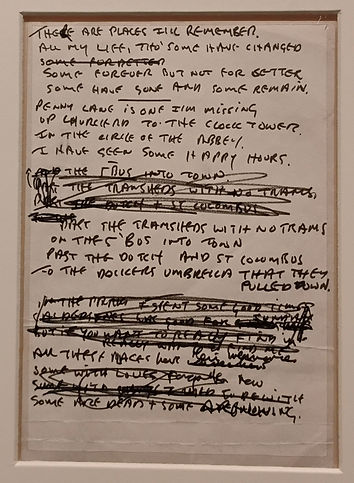 THERE ARE PLACES I'LL REMEMBER.
ALL MY LIFE, THO' SOME HAVE CHANGED
SOME FOR BETTER
SOME FOREVER BUT NOT FOR BETTER
SOME HAVE GONE AND SOME REMAIN.
PENNY LANE IS ONE I'M MISSING
UP CHURCH RD TO THE CLOCK TOWER.
IN THE CIRCLE OF THE ABBEY.
I HAVE SEEN SOME HAPPY HOURS.
THE 5 BUS INTO TOWN
THE TRAMSHEDS WITH NO TRAMS,
THE DUTCH + ST COLUMBUS
PAST THE TRAMSHEDS WITH NO TRAMS
ON THE 5 BUS INTO TOWN
PAST THE DUTCH AND ST COLUMBUS
TO THE DOCKERS UMBRELLA THAT THEY
PULLED DOWN.
IN THE SPENT SOME GOOD
GOOD FOR
YOU WANT TO REALLY FIND
REALLY
ALL THESE PLACES HAVE
SOME WITH LOVERS NEW
SOME WITH BE WITH
SOME ARE DEAD + SOME ARE LIVING.